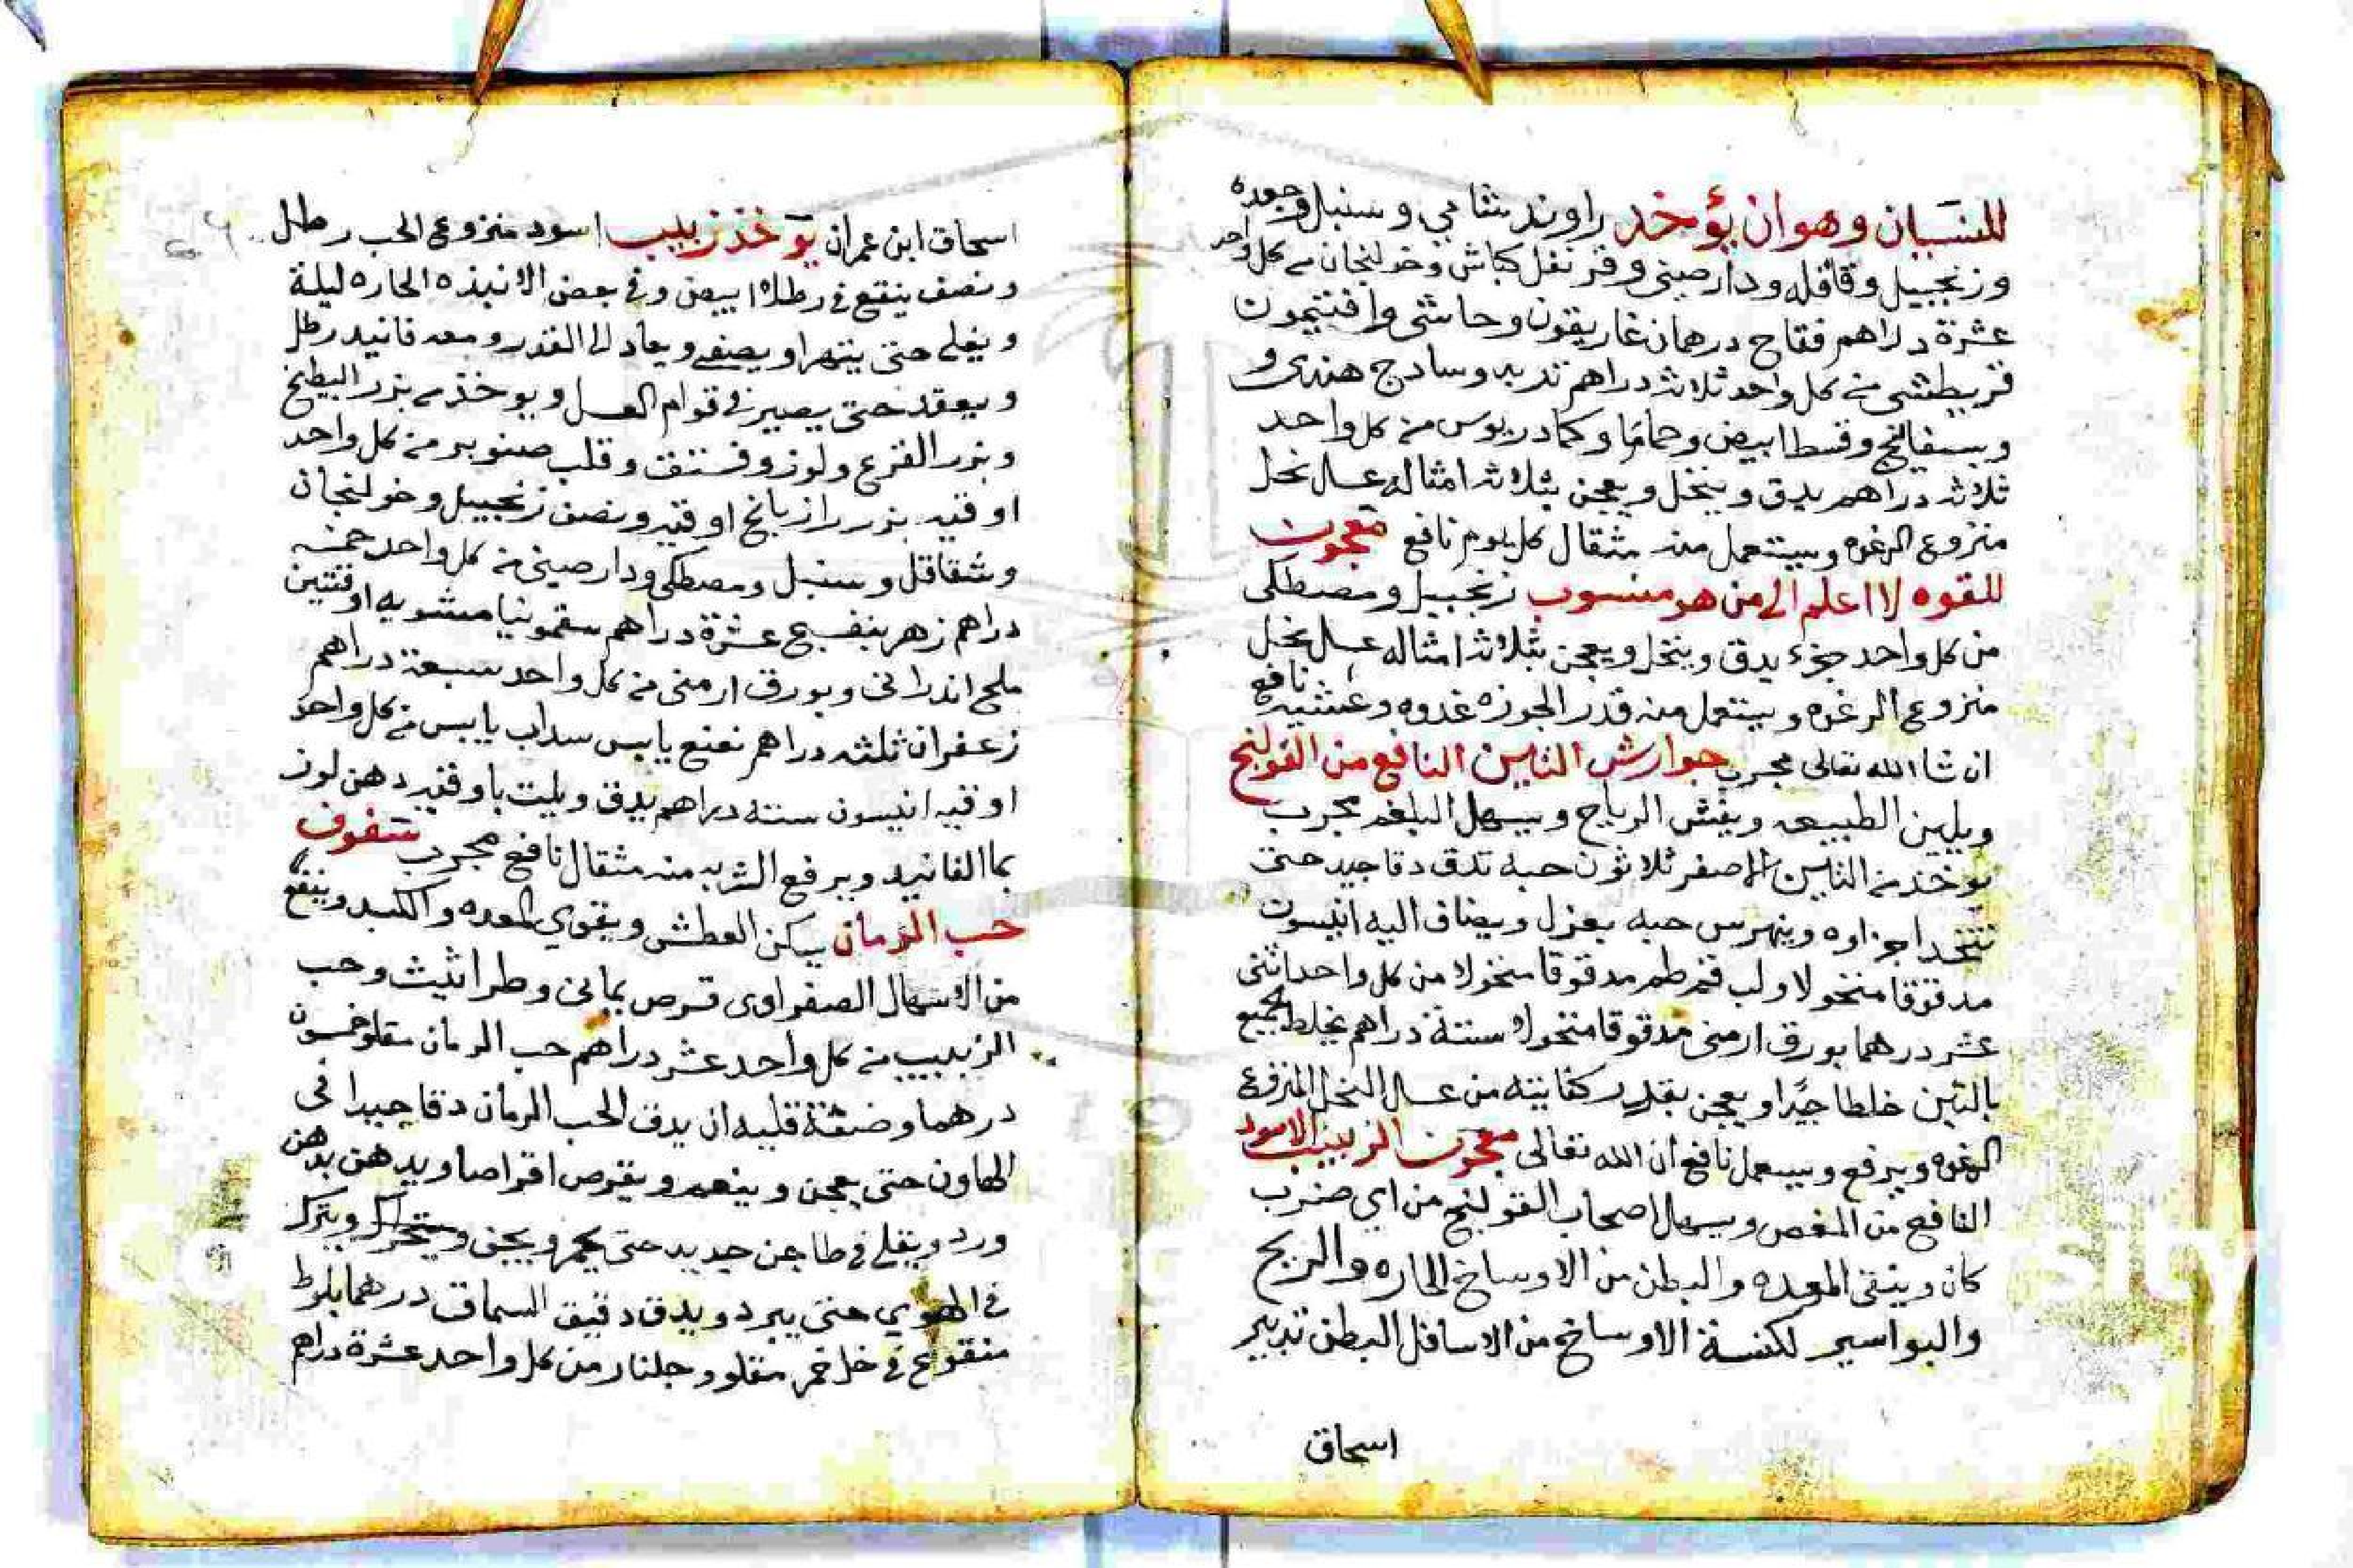 للنسيان وهو ان يؤخد راوند شامي وسنبل وجعده
وزنجبيل وقاقله ودار صيني وقرنفل كباش وخولنجان من كل واحد
عشرة دراهم فقاح درهمان غاريقون وحاشى وافتيمون
قريطشى من كل واحد ثلاثه دراهم تربد وسادج هندى و
وبسفايج وقسط ابيض وحماما وكمادريوس من كل واحد
ثلاثه دراهم يدق وينخل ويعجن بثلاثه امثاله عسل نحل
منزوع الرغوه ويستعمل منه مثقال كل يوم نافع معجون
للقوه لا اعلم الى من هو منسوب زنجبيل ومصطكى
من كل واحد جزء يدق وينخل ويعجن بثلاثه امثاله عسل نحل
منزوع الرغوه ويستعمل منه قدر الجوزه غدوه وعشيه نافع
ان شا الله تعالى مجرب جوارش التاين النافع من القولنج
ويلين الطبيعه ويفش الرياح ويسهل البلغم مجرب
يوخذ من التين الاصفر ثلاثون حبه تدق دقا جيد حتى
تتحد اجزاوه وينهرس حبه يعزل ويضاف اليه انيسون
مدقوقا منخولا ولب قرطم مدقوقا منخولا من كل واحد اثنى
عشر درهما بورق ارمنى مدقوقا منخولا ستة دراهم يخلط الجميع
بالتين خلطا جيدا ويعجن بقدر كفايته من عسل النحل المنزوع
الرغوه ويرفع ويستعمل نافع ان الله تعالى معجون الزبيب الاسود
النافع من المغص ويسهل اصحاب القولنج من اي ضرب
كان وينقى المعده والبطن من الاوساخ الحاره والريح
والبواسير لكنسة الاوساخ من الاسافل البطن تدبير
اسحاق
اسحاق ابن عمران يوخذ زبيب اسود منزوع الحب رطل
ونصف ينقع فى رطلا ابيض وفى بعض الانبذه الحاره ليلة
ويغلى حتى ينهرا ويصفى ويعاد الى القدر ومعه فانيد رطل
ويعقد حتى يصير فى قوام العسل ويوخذ من بزر البطيخ
وبزر القرع ولوز وفستق وقلب صنوبر من كل واحد
اوقيه بزر رازيانج اوقيه ونصف زنجبيل وخولنجان
وشقاقل وسنبل ومصطكى ودار صينى من كل واحد خمسه
دراهم زهر بنفسج عشرة دراهم سقمونيا مشويه اوقيتين
ملح اندرانى وبورق ارمنى من كل واحد سبعة دراهم
زعفران ثلثه دراهم نعنع يابس سداب يابس من كل واحد
اوقيه انيسون سته دراهم يدق ويلت باوقيه دهن لوز
بما الفانيد ويرفع الشربه منه مثقال نافع مجرب سفوف
حب الرمان يسكن العطش ويقوي المعده والكبد وينفع
من الاسهال الصفراوى قرص يمانى وطراثيث وحب
الزبيب من كل واحد عشر دراهم حب الرمان مقلو خمسون
درهما وصفة قليه ان يدق الحب الرمان دقا جيدا فى
الهاون حتى يعجن وينعم ويقرص اقراصا ويدهن بدهن
ورد ويقلى فى طاجن جديد حتى يحمر ويجف ويتحرك ويترك
فى الهوي حتى يبرد ويدق دقيق السماق درهما بلوط
منقوع فى خل خمر مقلو وجلنار من كل واحد عشرة دراهم